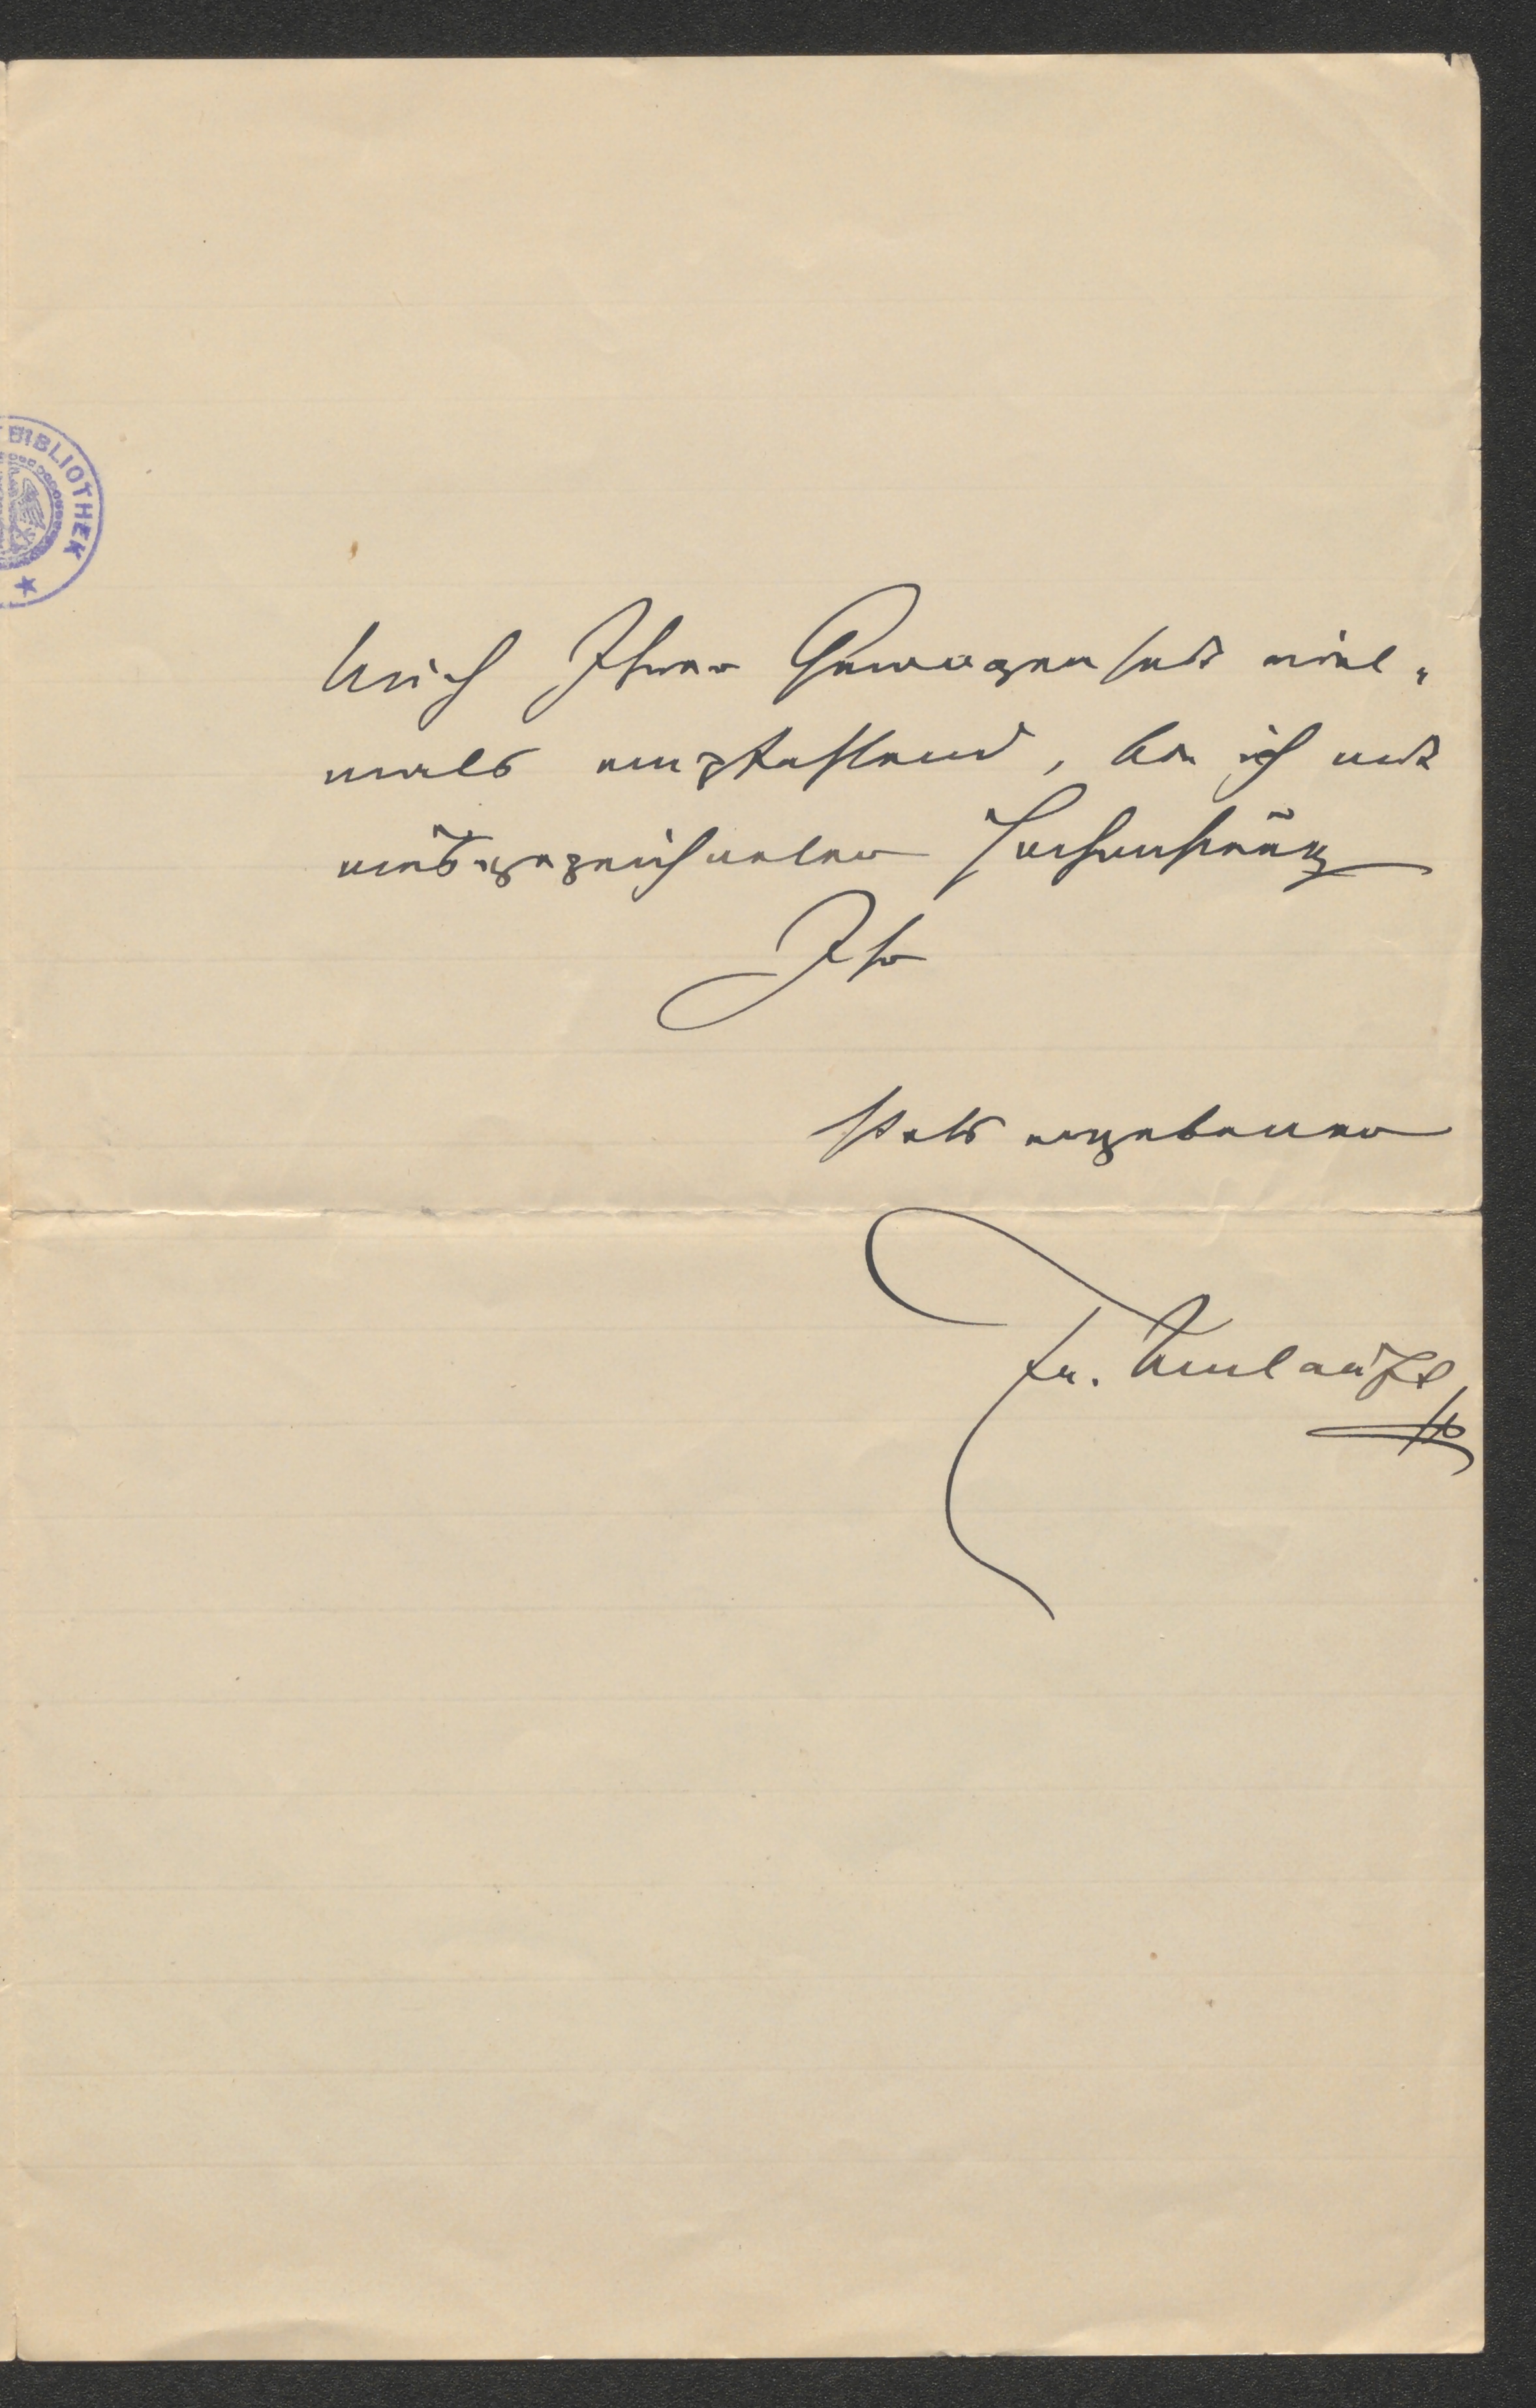 BIBLIOTHEK
Mich Ihrer Gewogenheit viel-
mals empfehlend, bin ich mit
ausgezeichneter Hochschätzung
Ihr
stets ergebener
Fr. Umlauft